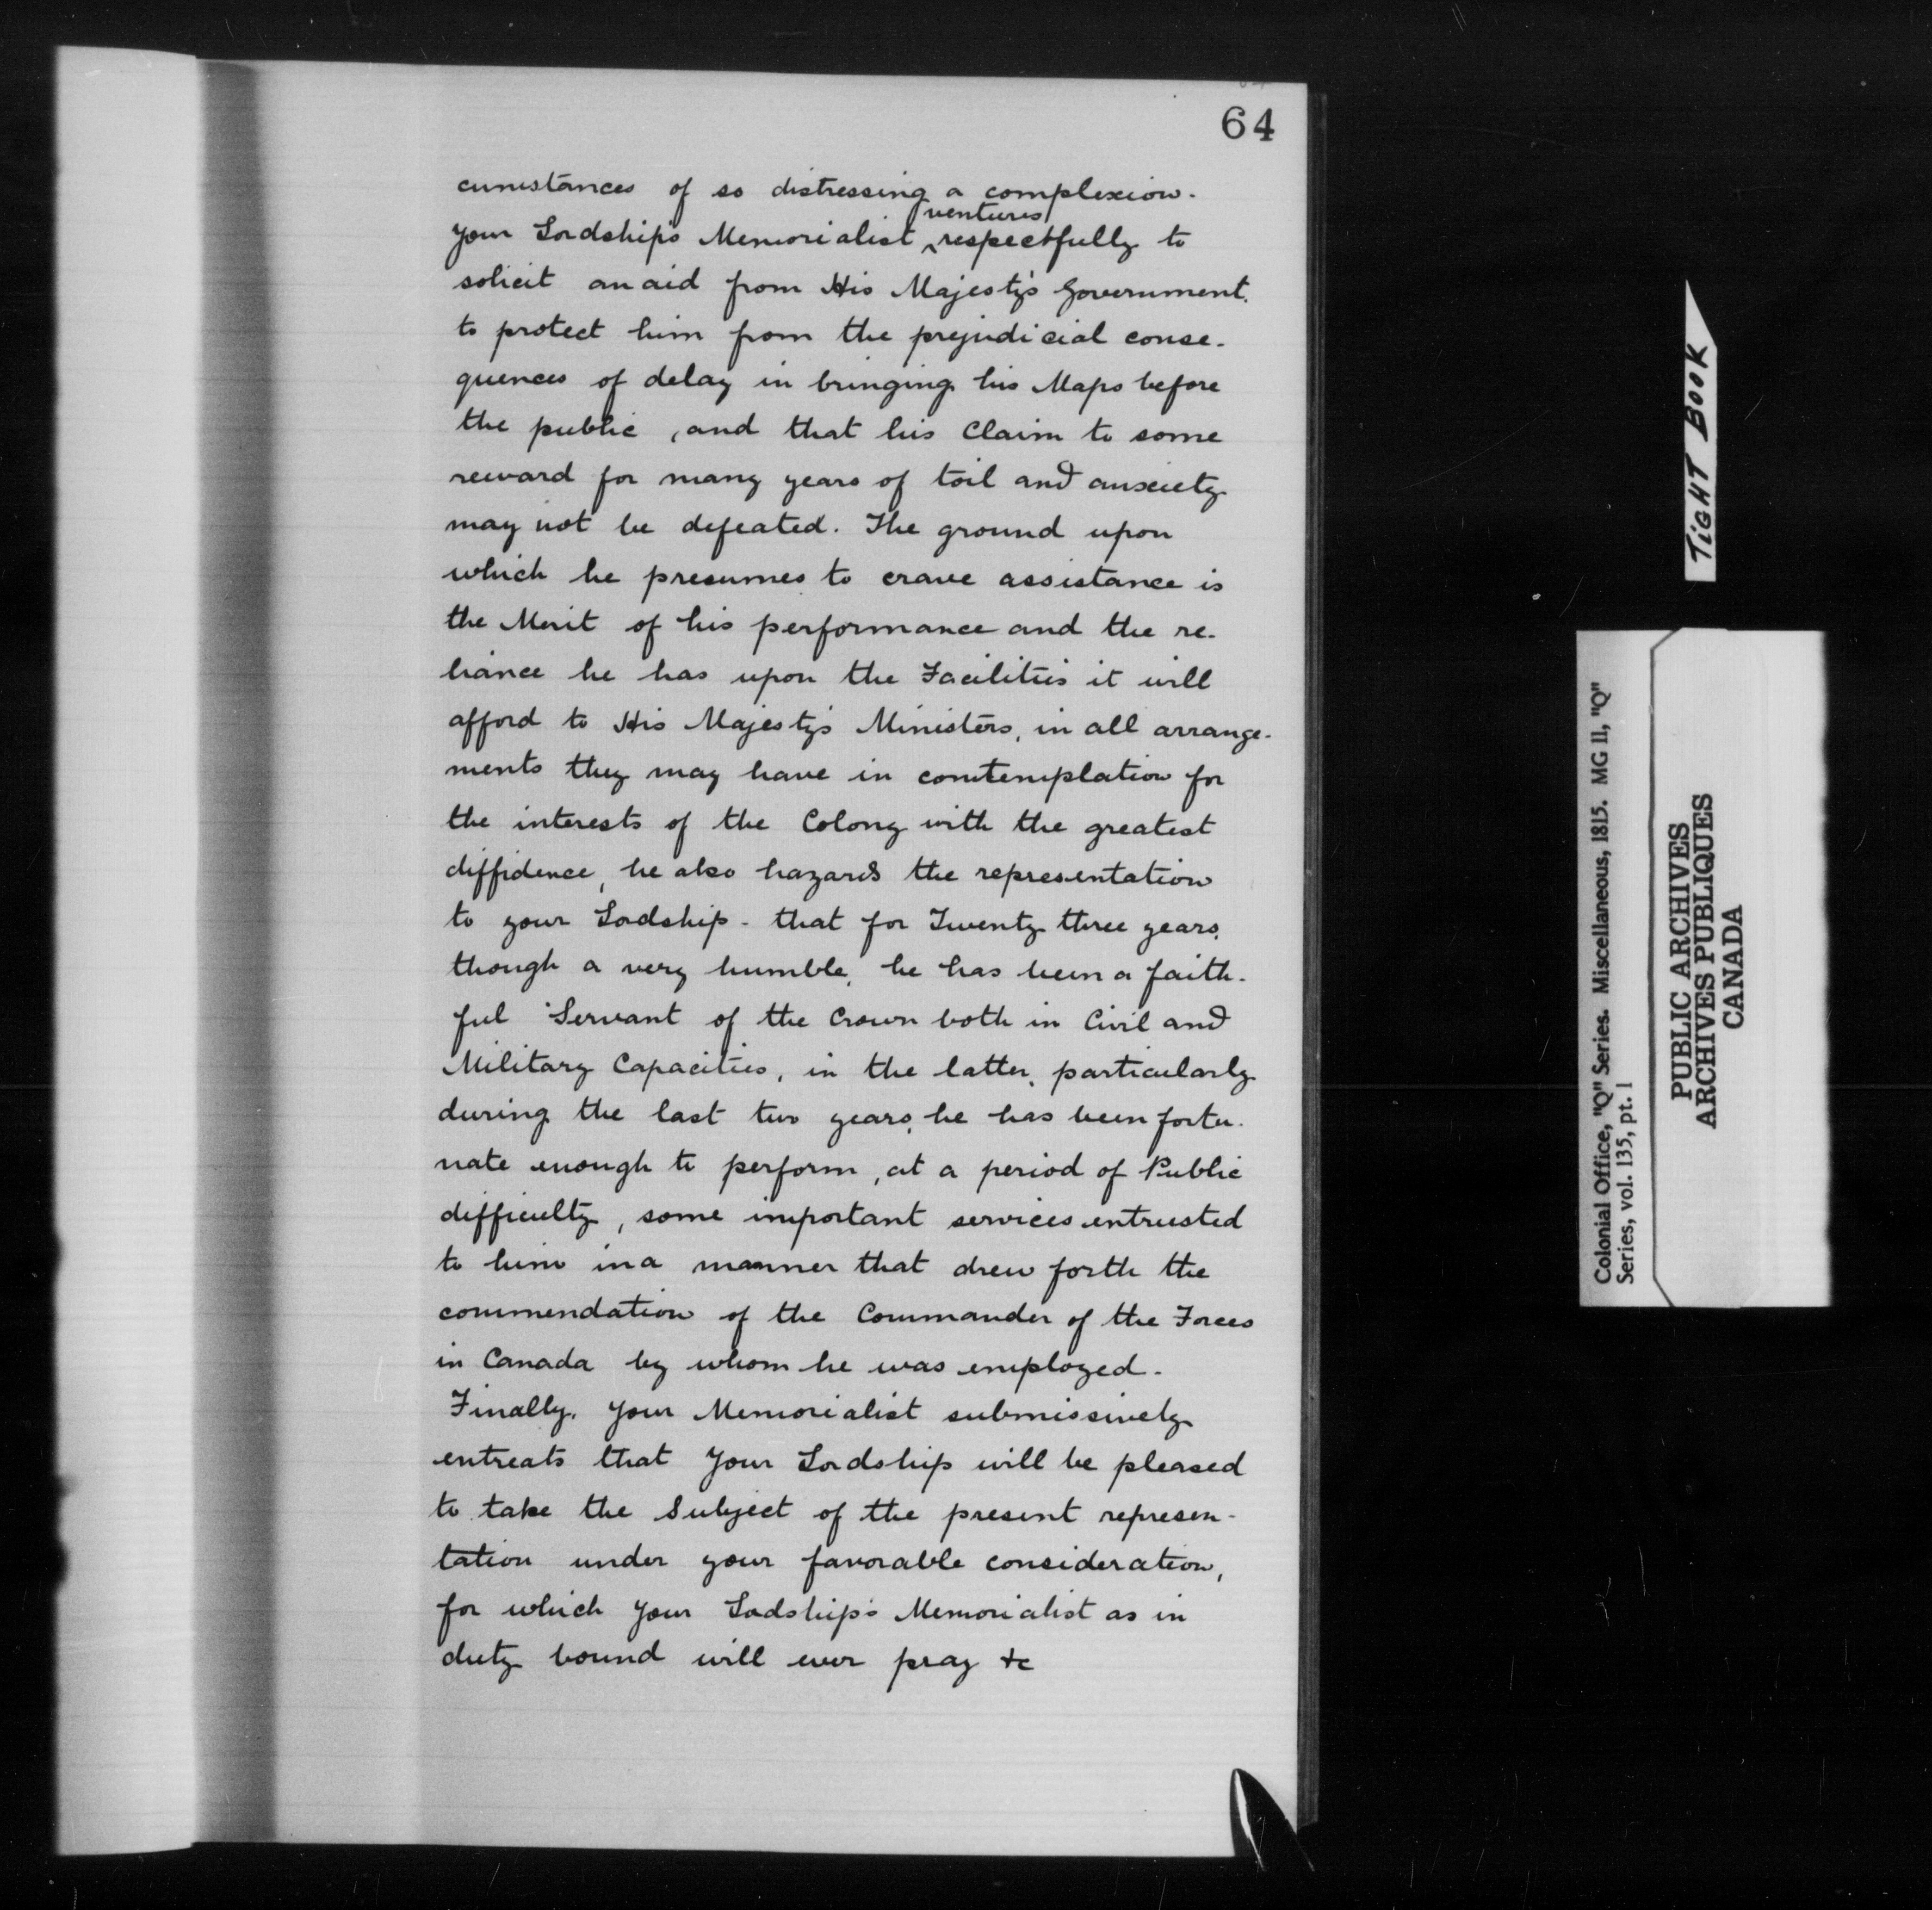 64
cumstances of so distressing a complexion.
ventures
Your Lordship's Memorialist ^ respectfully to
solicit an aid from His Majesty's Government.
to protect him from the prejudicial conse-
quences of delay in bringing his Maps before
the public, and that his Claim to some
reward for many years of toil and anxiety
may not be defeated. The ground upon
which he presumes to crave assistance is
the Merit of his performance and the re-
liance he has upon the Facilities it will
afford to His Majesty's Ministers, in all arrange-
ments they may have in comtemplation for
the interests of the Colony with the greatest
diffidence, he also hazards the representation
to your Lordship - that for Twenty three years,
though a very humble, he has been a faith-
ful Servant of the Crown both in Civil and
Military Capacities, in the latter, particularly
during the last two years, he has been fortu-
nate enough to perform, at a period of Public
difficulty, some important services entrusted
to him in a manner that drew forth the
commendation of the Commander of the Forces
in Canada by whom he was employed.
Finally, Your Memorialist submissively
entreats that Your Lordship will be pleased
to take the Subject of the present represen-
tation under your favorable consideration,
for which Your Lordship's Memorialist as in
duty bound will ever pray &c
TIGHT BOOK
Colonial Office, "Q" Series. Miscellaneous, 1815. MG 11, "Q"
Series, vol. 135, pt. 1
PUBLIC ARCHIVES
ARCHIVES PUBLIQUES
CANADA